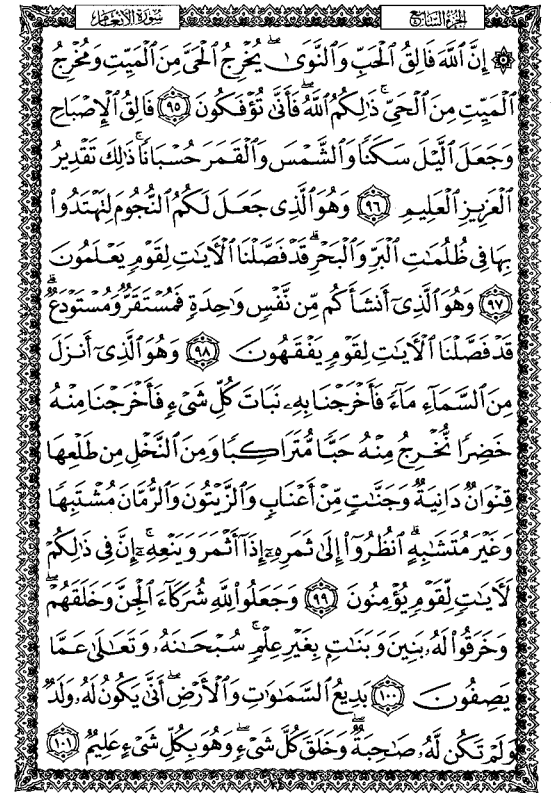 سورة الأنعام الجزء السابع
۞ إِنَّ ٱللَّهَ فَالِقُ ٱلْحَبِّ وَٱلنَّوَىٰۖ يُخْرِجُ ٱلْحَيَّ مِنَ ٱلْمَيِّتِ وَمُخْرِجُ
ٱلْمَيِّتِ مِنَ ٱلْحَيِّۚ ذَٰلِكُمُ ٱللَّهُۖ فَأَنَّىٰ تُؤْفَكُونَ ٩٥ فَالِقُ ٱلْإِصْبَاحِ
وَجَعَلَ ٱلَّيْلَ سَكَنًا وَٱلشَّمْسَ وَٱلْقَمَرَ حُسْبَانًاۚ ذَٰلِكَ تَقْدِيرُ
ٱلْعَزِيزِ ٱلْعَلِيمِ ٩٦ وَهُوَ ٱلَّذِي جَعَلَ لَكُمُ ٱلنُّجُومَ لِتَهْتَدُوا۟
بِهَا فِي ظُلُمَٰتِ ٱلْبَرِّ وَٱلْبَحْرِۗ قَدْ فَصَّلْنَا ٱلْـَٔايَٰتِ لِقَوْمٍ يَعْلَمُونَ
٩٧ وَهُوَ ٱلَّذِيٓ أَنشَأَكُم مِّن نَّفْسٍ وَٰحِدَةٍ فَمُسْتَقَرٌّ وَمُسْتَوْدَعٌۗ
قَدْ فَصَّلْنَا ٱلْـَٔايَٰتِ لِقَوْمٍ يَفْقَهُونَ ٩٨ وَهُوَ ٱلَّذِيٓ أَنزَلَ
مِنَ ٱلسَّمَآءِ مَآءً فَأَخْرَجْنَا بِهِۦ نَبَاتَ كُلِّ شَيْءٍ فَأَخْرَجْنَا مِنْهُ
خَضِرًا نُّخْرِجُ مِنْهُ حَبًّا مُّتَرَاكِبًا وَمِنَ ٱلنَّخْلِ مِن طَلْعِهَا
قِنْوَانٌ دَانِيَةٌ وَجَنَّٰتٍ مِّنْ أَعْنَابٍ وَٱلزَّيْتُونَ وَٱلرُّمَّانَ مُشْتَبِهًا
وَغَيْرَ مُتَشَٰبِهٍۗ ٱنظُرُوٓا۟ إِلَىٰ ثَمَرِهِۦٓ إِذَآ أَثْمَرَ وَيَنْعِهِۦٓۚ إِنَّ فِي ذَٰلِكُمْ
لَـَٔايَٰتٍ لِّقَوْمٍ يُؤْمِنُونَ ٩٩ وَجَعَلُوا۟ لِلَّهِ شُرَكَآءَ ٱلْجِنَّ وَخَلَقَهُمْۖ
وَخَرَقُوا۟ لَهُۥ بَنِينَ وَبَنَٰتٍۭ بِغَيْرِ عِلْمٍۚ سُبْحَٰنَهُۥ وَتَعَٰلَىٰ عَمَّا
يَصِفُونَ ١٠٠ بَدِيعُ ٱلسَّمَٰوَٰتِ وَٱلْأَرْضِۖ أَنَّىٰ يَكُونُ لَهُۥ وَلَدٌ
وَلَمْ تَكُن لَّهُۥ صَٰحِبَةٌۖ وَخَلَقَ كُلَّ شَيْءٍۖ وَهُوَ بِكُلِّ شَيْءٍ عَلِيمٌ ١٠١